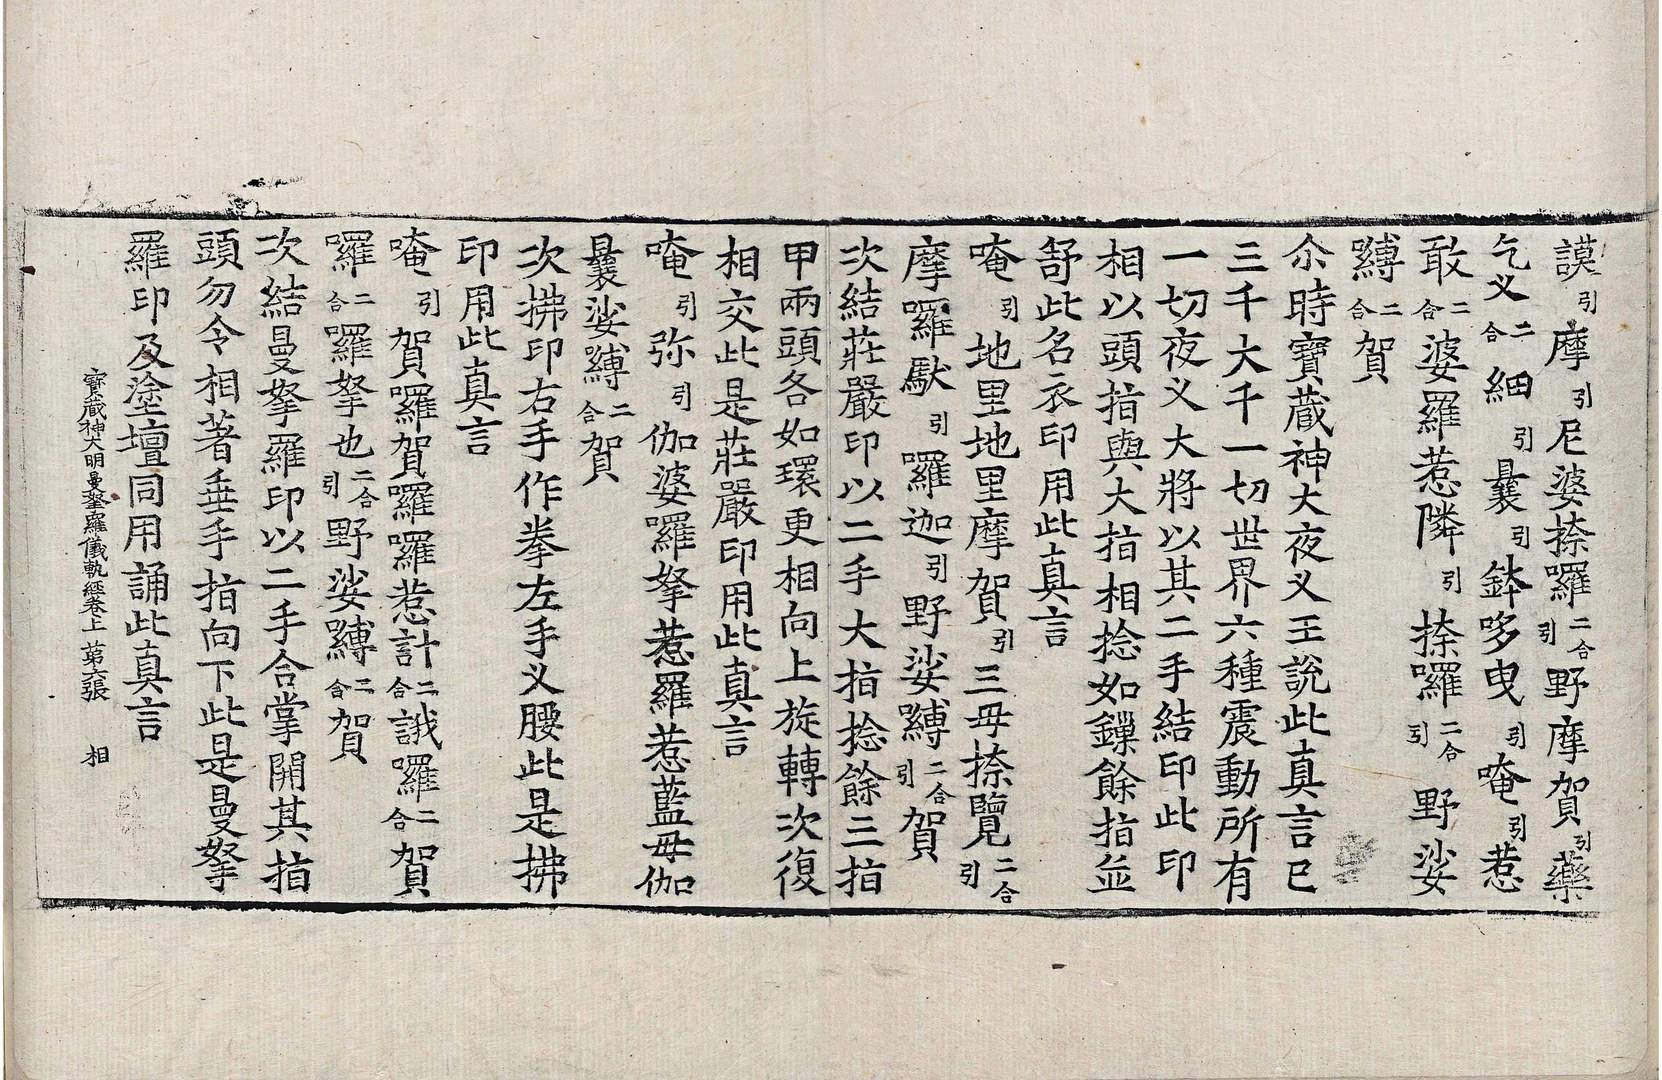 謨引摩引尼婆捺囉二合引野摩賀引藥
乞义二合細引曩引鉢哆曳引唵引惹
敢二合婆羅惹隣引捺囉二合引野娑
嚩二合賀
尒時寶藏神大夜义王說此真言已
三千大千一切世界六種震動所有
一切夜义大將以其二手結印此印
相以頭指與大指相捻如鏁餘指並
舒此名衣印用此真言
唵引地里地里摩賀引三毋捺覽二合引
摩囉馱引囉迦引野娑嚩二合引賀
次結莊嚴印以二手大指捻餘三指
甲兩頭各如環更相向上旋轉次復
相交此是莊嚴印用此真言
唵引弥引伽婆囉拏惹羅惹藍毋伽
曩娑嚩二合賀
次拂印右手作拳左手义腰此是拂
印用此真言
唵引賀囉賀囉囉惹計二合誐囉二合賀
囉二合囉拏也二合引野娑嚩二合賀
次結曼拏羅印以二手合掌開其指
頭勿令相著垂手指向下此是曼拏
羅印及塗壇同用誦此真言
寶藏神大明曼拏羅儀軌經卷上 第六張 相